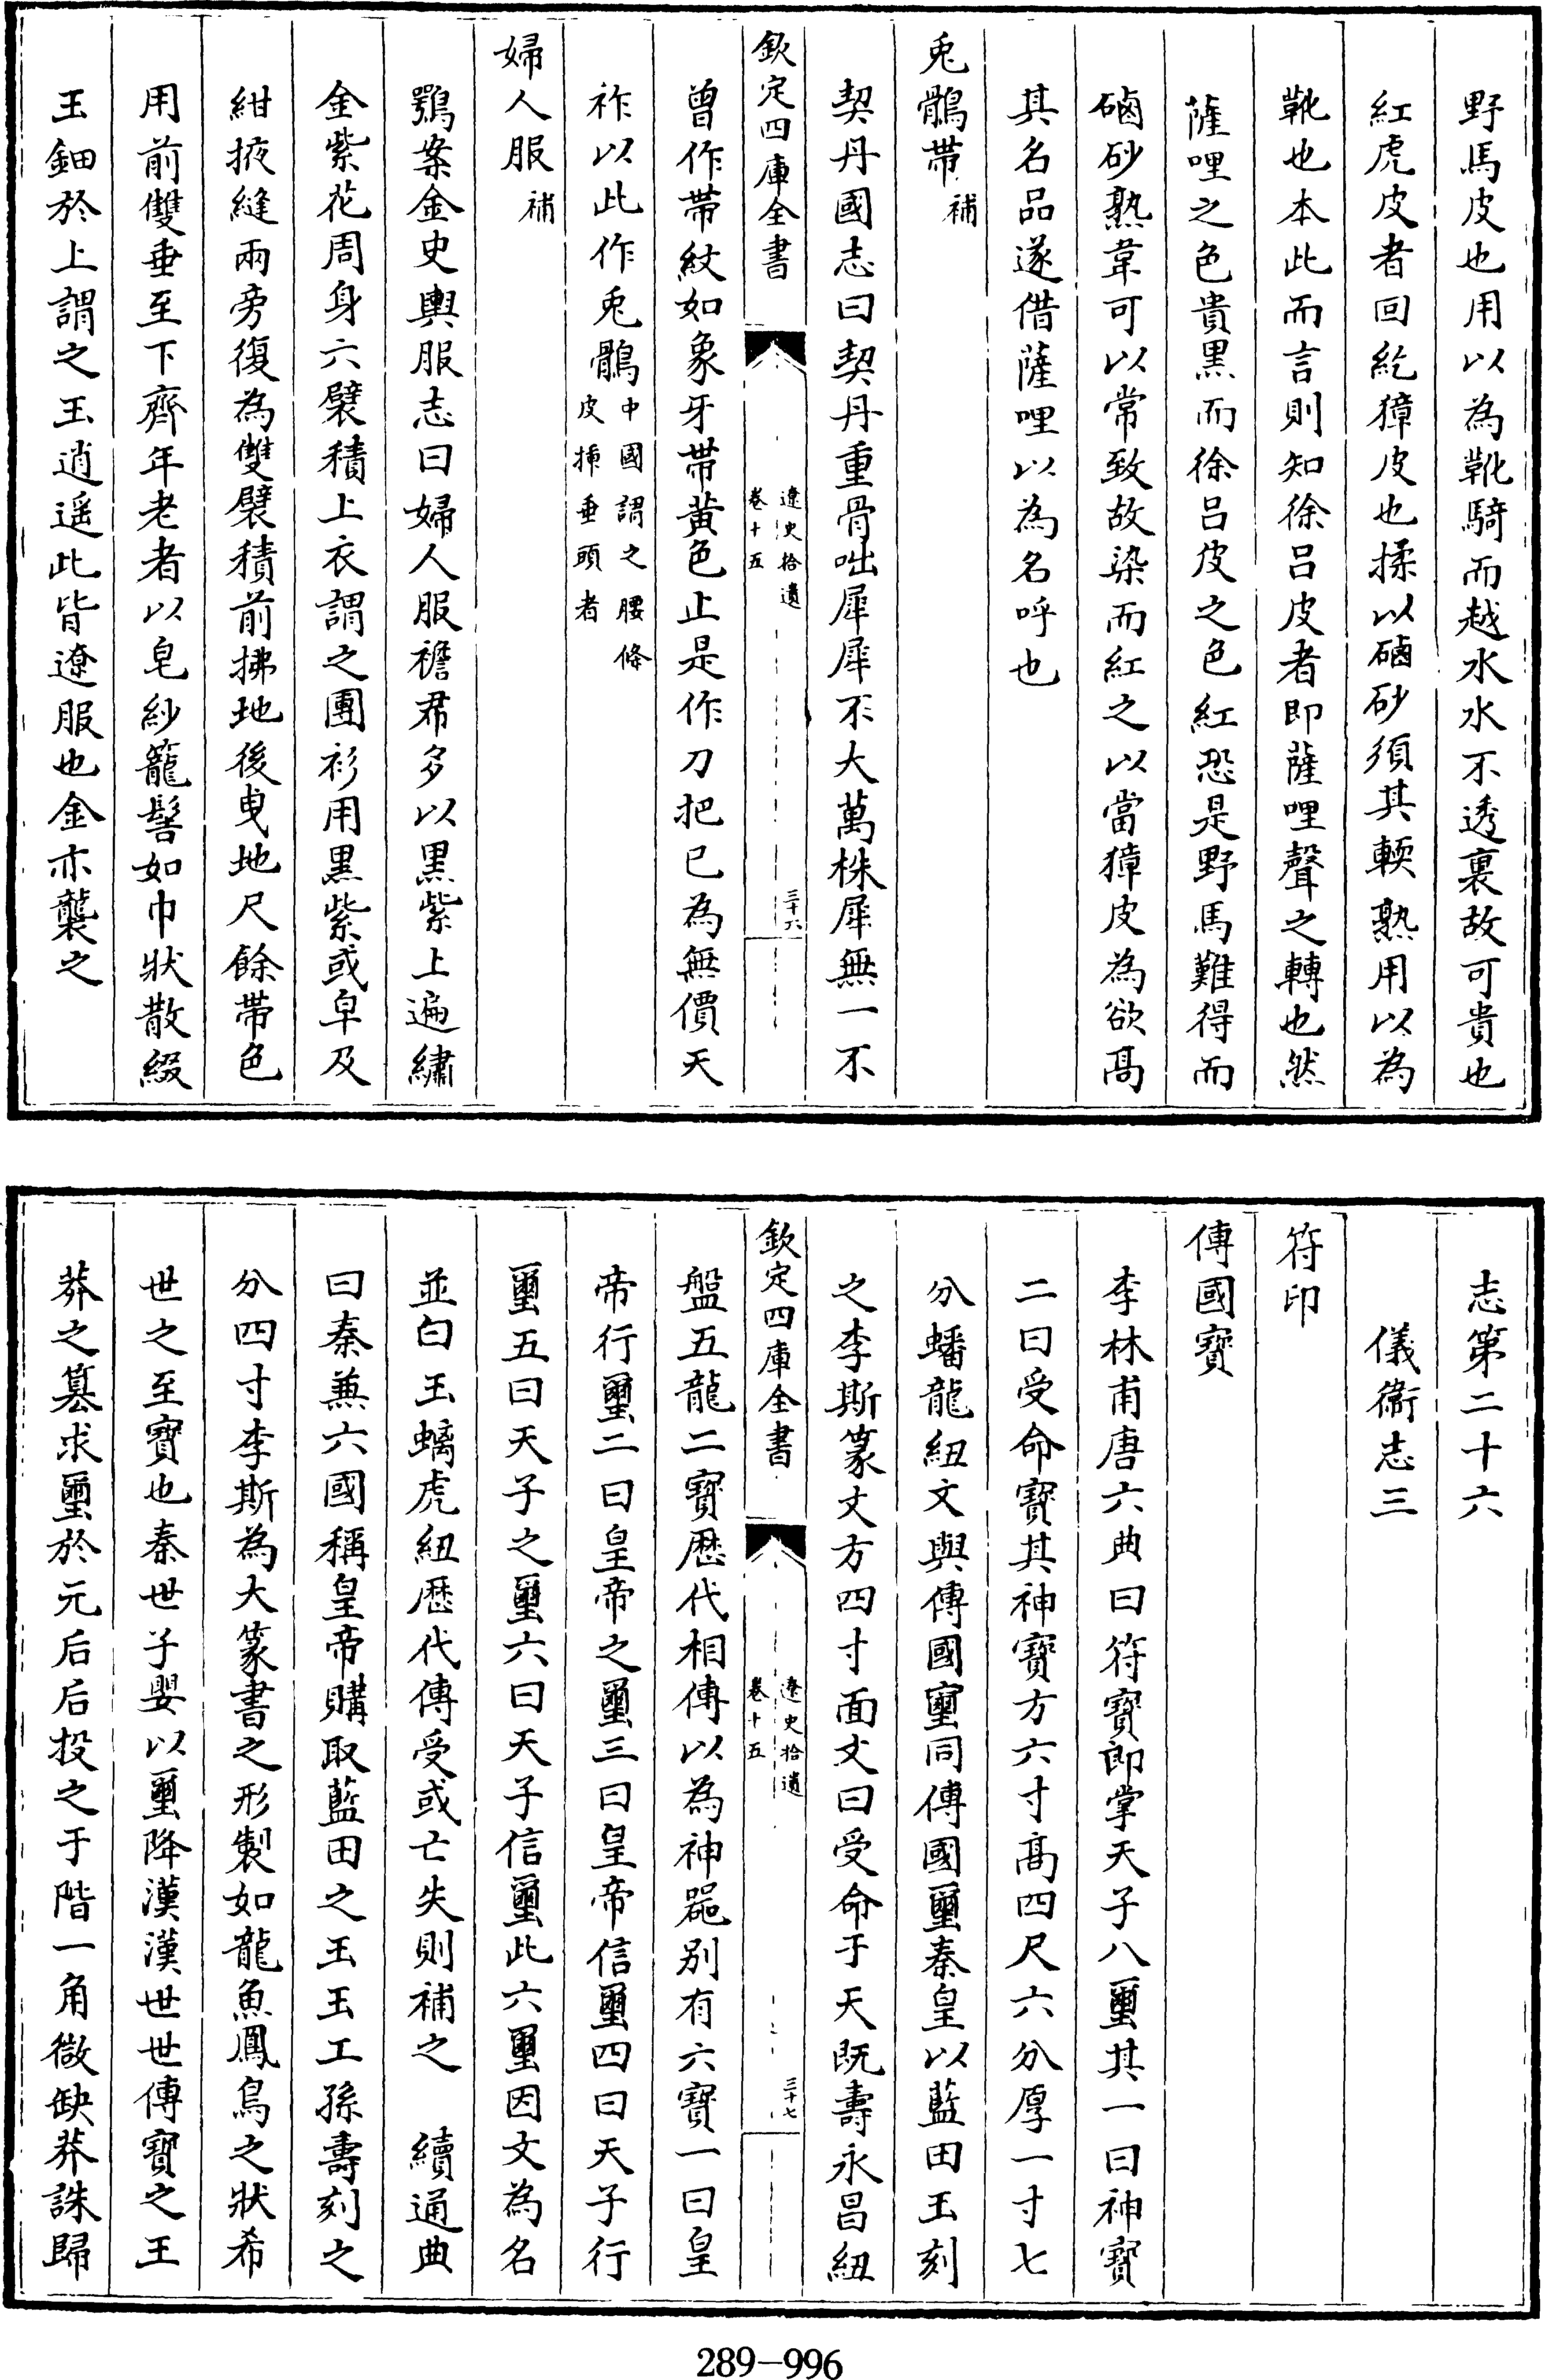 野馬皮也用以為靴騎而越水水不透裏故可貴也
紅虎皮者回紇獐皮也揉以磠砂須其輭熟用以為
靴也本此而言則知徐呂皮者即薩哩聲之轉也然
薩哩之色貴黒而徐呂皮之色紅恐是野馬難得而
磠砂熟韋可以常致故染而紅之以當獐皮為欲髙
其名品遂借薩哩以為名呼也
兎鶻帯補
契丹國志曰契丹重骨咄犀犀不大萬株犀無一不
欽定四庫全書
遼史拾遺
卷十五
三十六
曾作帯紋如象牙帯黄色止是作刀把已為無價天
祚以此作兎鶻中國謂之腰絛
皮揷垂頭者
婦人服補
鶚案金史輿服志曰婦人服襜帬多以黒紫上遍繡
金紫花周身六襞積上衣謂之團衫用黒紫或皁及
紺掖縫兩旁復為雙襞積前拂地後曵地尺餘帯色
用前雙垂至下齊年老者以皂紗籠髻如巾狀散綴
玉鈿於上謂之玉逍遥此皆遼服也金亦襲之
志第二十六
儀衛志三
符印
傳國寳
李林甫唐六典曰符寳郎掌天子八璽其一曰神寳
二曰受命寳其神寳方六寸髙四尺六分厚一寸七
分蟠龍紐文與傳國璽同傳國璽秦皇以藍田玉刻
之李斯篆文方四寸面文曰受命于天既壽永昌紐
欽定四庫全書
遼史拾遺
卷十五
三十七
盤五龍二寳歴代相傳以為神器别有六寳一曰皇
帝行璽二曰皇帝之璽三曰皇帝信璽四曰天子行
璽五曰天子之璽六曰天子信璽此六璽因文為名
並白玉螭虎紐歴代傳受或亡失則補之 續通典
曰秦兼六國稱皇帝購取藍田之玉玉工孫壽刻之
分四寸李斯為大篆書之形製如龍魚鳳鳥之狀希
世之至寳也秦世子嬰以璽降漢漢世世傳寳之王
莽之簒求璽於元后后投之于階一角㣲缺莽誅歸
289-996